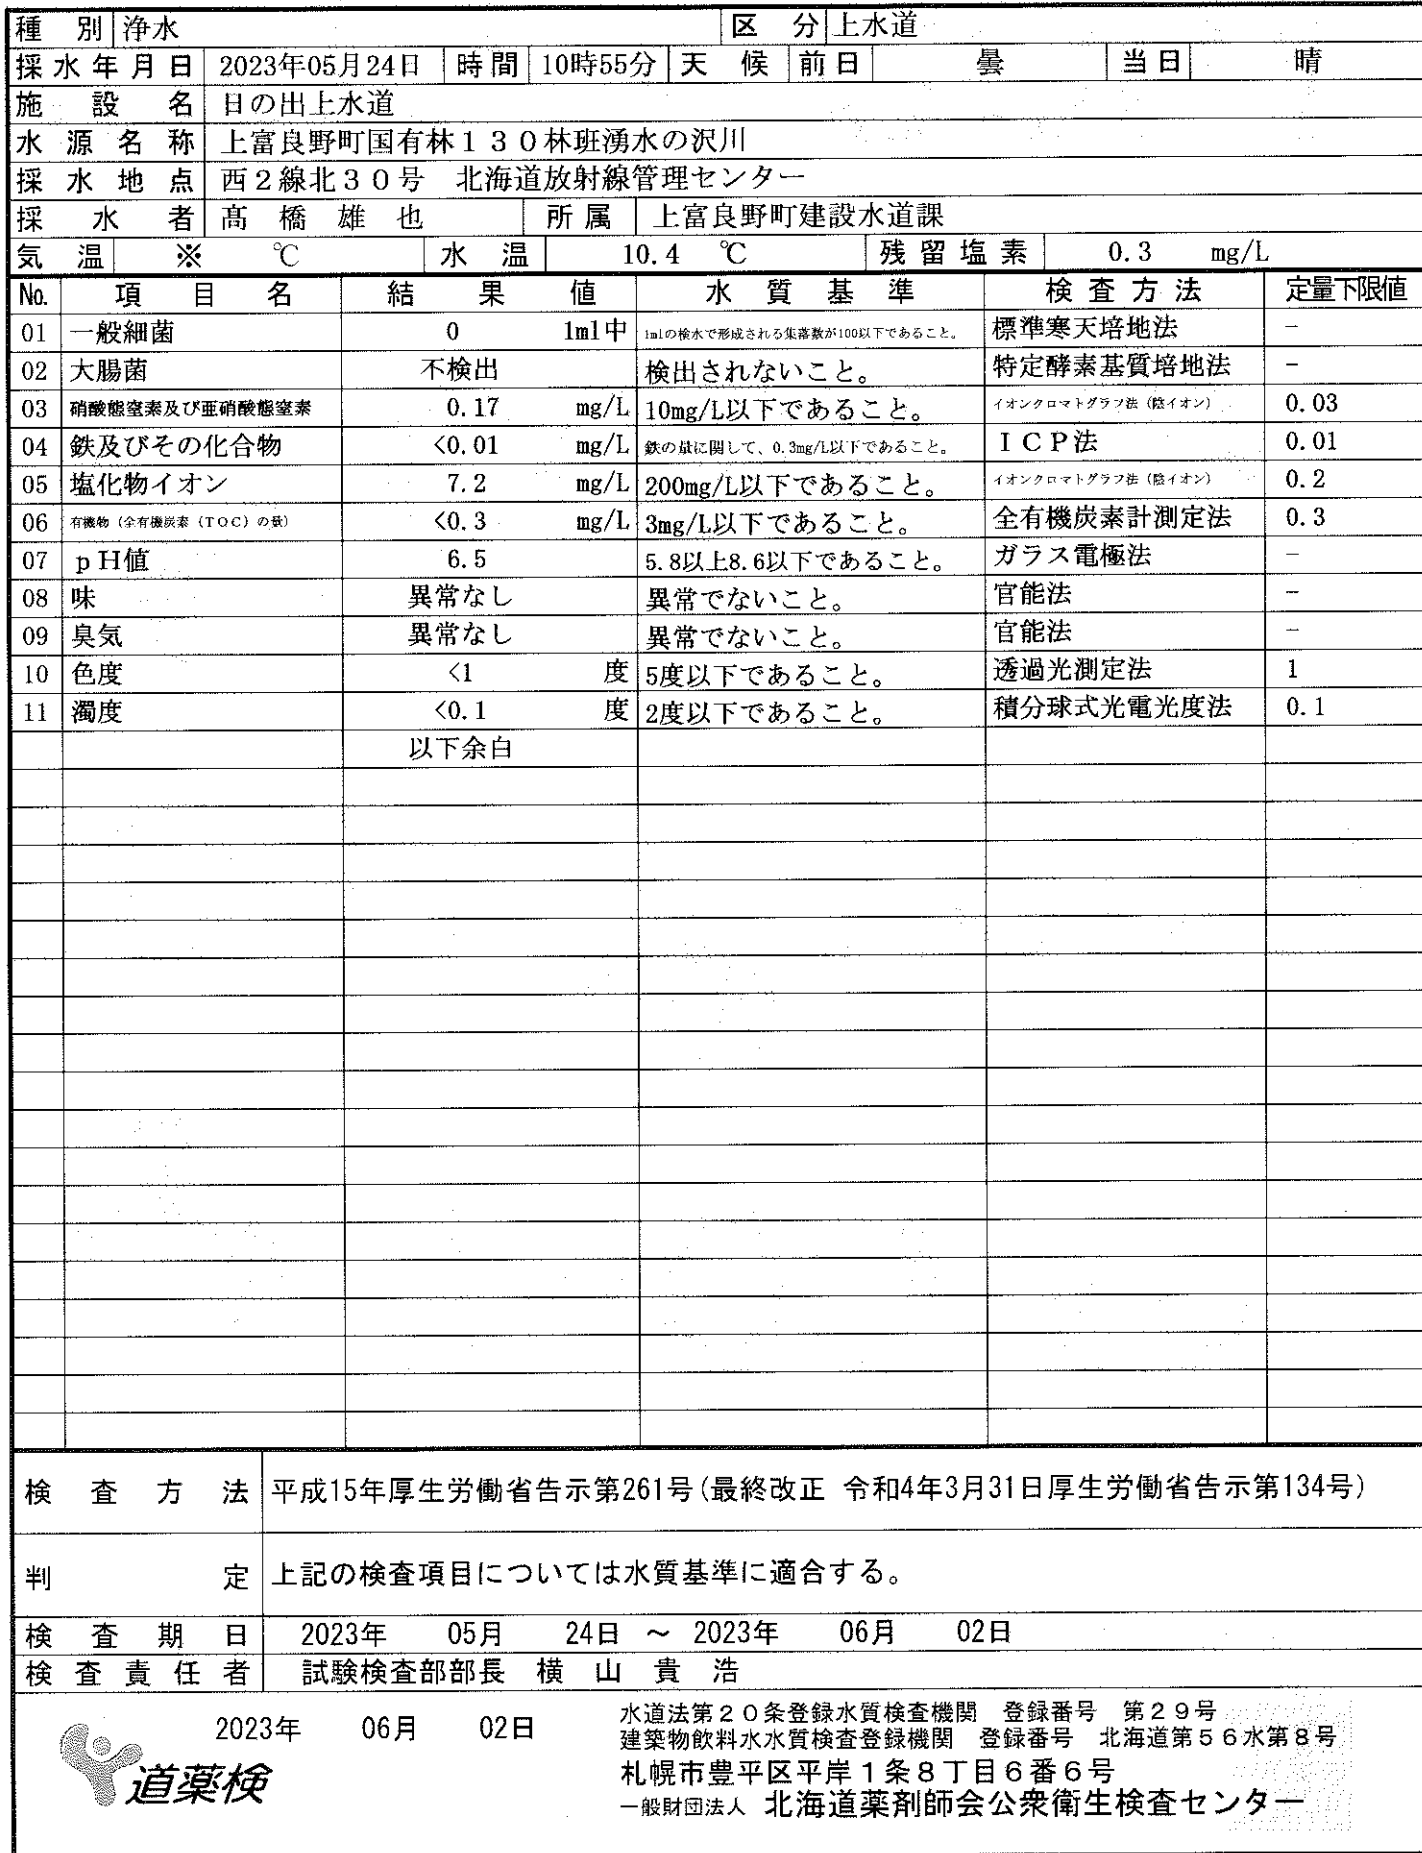 種 別 浄水 区 分 上水道
採水年月日 2023年05月24日 時間 10時55分 天 候 前日 曇 当日 晴
施 設 名 日の出上水道
水 源 名 称 上富良野町国有林130林班湧水の沢川
採 水 地 点 西2線北30号 北海道放射線管理センター
採 水 者 髙 橋 雄 也 所属 上富良野町建設水道課
気 温 ※ ℃ 水 温 10.4 ℃ 残留塩素 0.3 mg/L
No. 項 目 名 結 果 値 水 質 基 準 検査方法 定量下限値
01 一般細菌 0 1ml中 1mlの検水で形成される集落数が100以下であること。 標準寒天培地法 −
02 大腸菌 不検出 検出されないこと。 特定酵素基質培地法 −
03 硝酸態窒素及び亜硝酸態窒素 0.17 mg/L 10mg/L以下であること。 イオンクロマトグラフ法（陰イオン） 0.03
04 鉄及びその化合物 <0.01 mg/L 鉄の量に関して、0.3mg/L以下であること。 ICP法 0.01
05 塩化物イオン 7.2 mg/L 200mg/L以下であること。 イオンクロマトグラフ法（陰イオン） 0.2
06 有機物（全有機炭素（TOC）の量） <0.3 mg/L 3mg/L以下であること。 全有機炭素計測定法 0.3
07 pH値 6.5 5.8以上8.6以下であること。 ガラス電極法 −
08 味 異常なし 異常でないこと。 官能法 −
09 臭気 異常なし 異常でないこと。 官能法 −
10 色度 <1 度 5度以下であること。 透過光測定法 1
11 濁度 <0.1 度 2度以下であること。 積分球式光電光度法 0.1
以下余白
検 査 方 法 平成15年厚生労働省告示第261号(最終改正 令和4年3月31日厚生労働省告示第134号)
判 定 上記の検査項目については水質基準に適合する。
検 査 期 日 2023年 05月 24日 ～ 2023年 06月 02日
検 査 責 任 者 試験検査部部長 横 山 貴 浩
2023年 06月 02日
道薬検
水道法第20条登録水質検査機関 登録番号 第29号
建築物飲料水水質検査登録機関 登録番号 北海道第56水第8号
札幌市豊平区平岸1条8丁目6番6号
一般財団法人 北海道薬剤師会公衆衛生検査センター